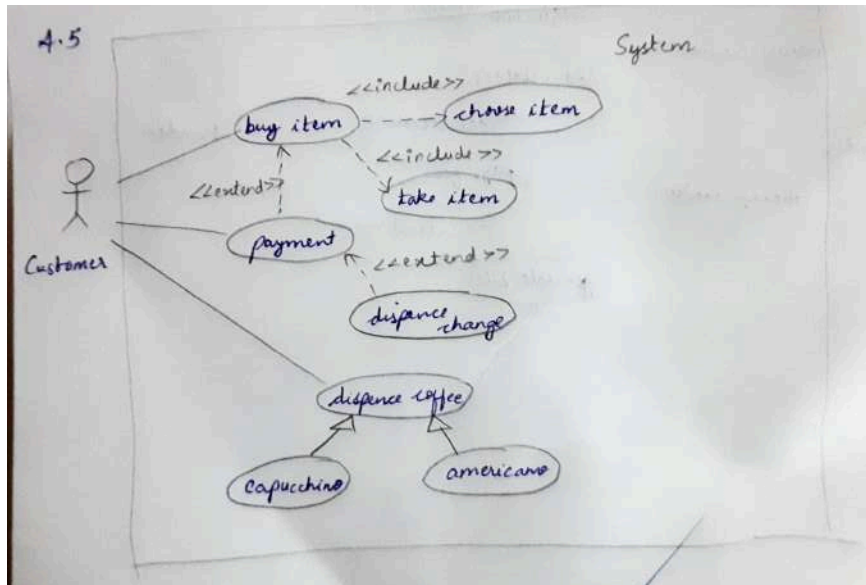 4.5
System
<<include>>
buy item
choose item
<<include>>
<<extend>>
take item
payment
Customer
<<extend>>
dispence
change
dispence coffee
capucchino
americano